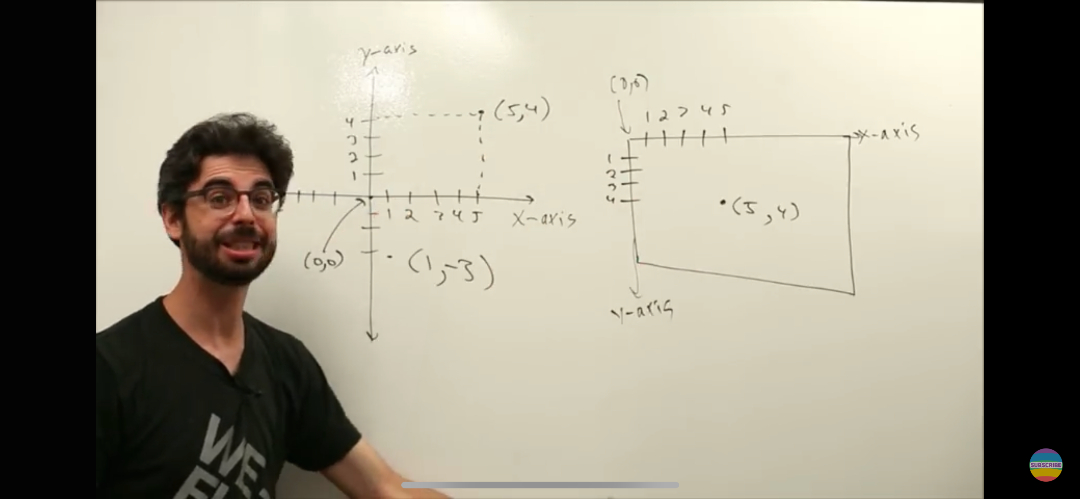 y-axis
4
3
2
1
(5,4)
1 2 3 4 5
x-axis
(0,0)
(1,-3)
(0,0)
1 2 3 4 5
x-axis
1
2
3
4
(5,4)
y-axis
WE
SUBSCRIBE